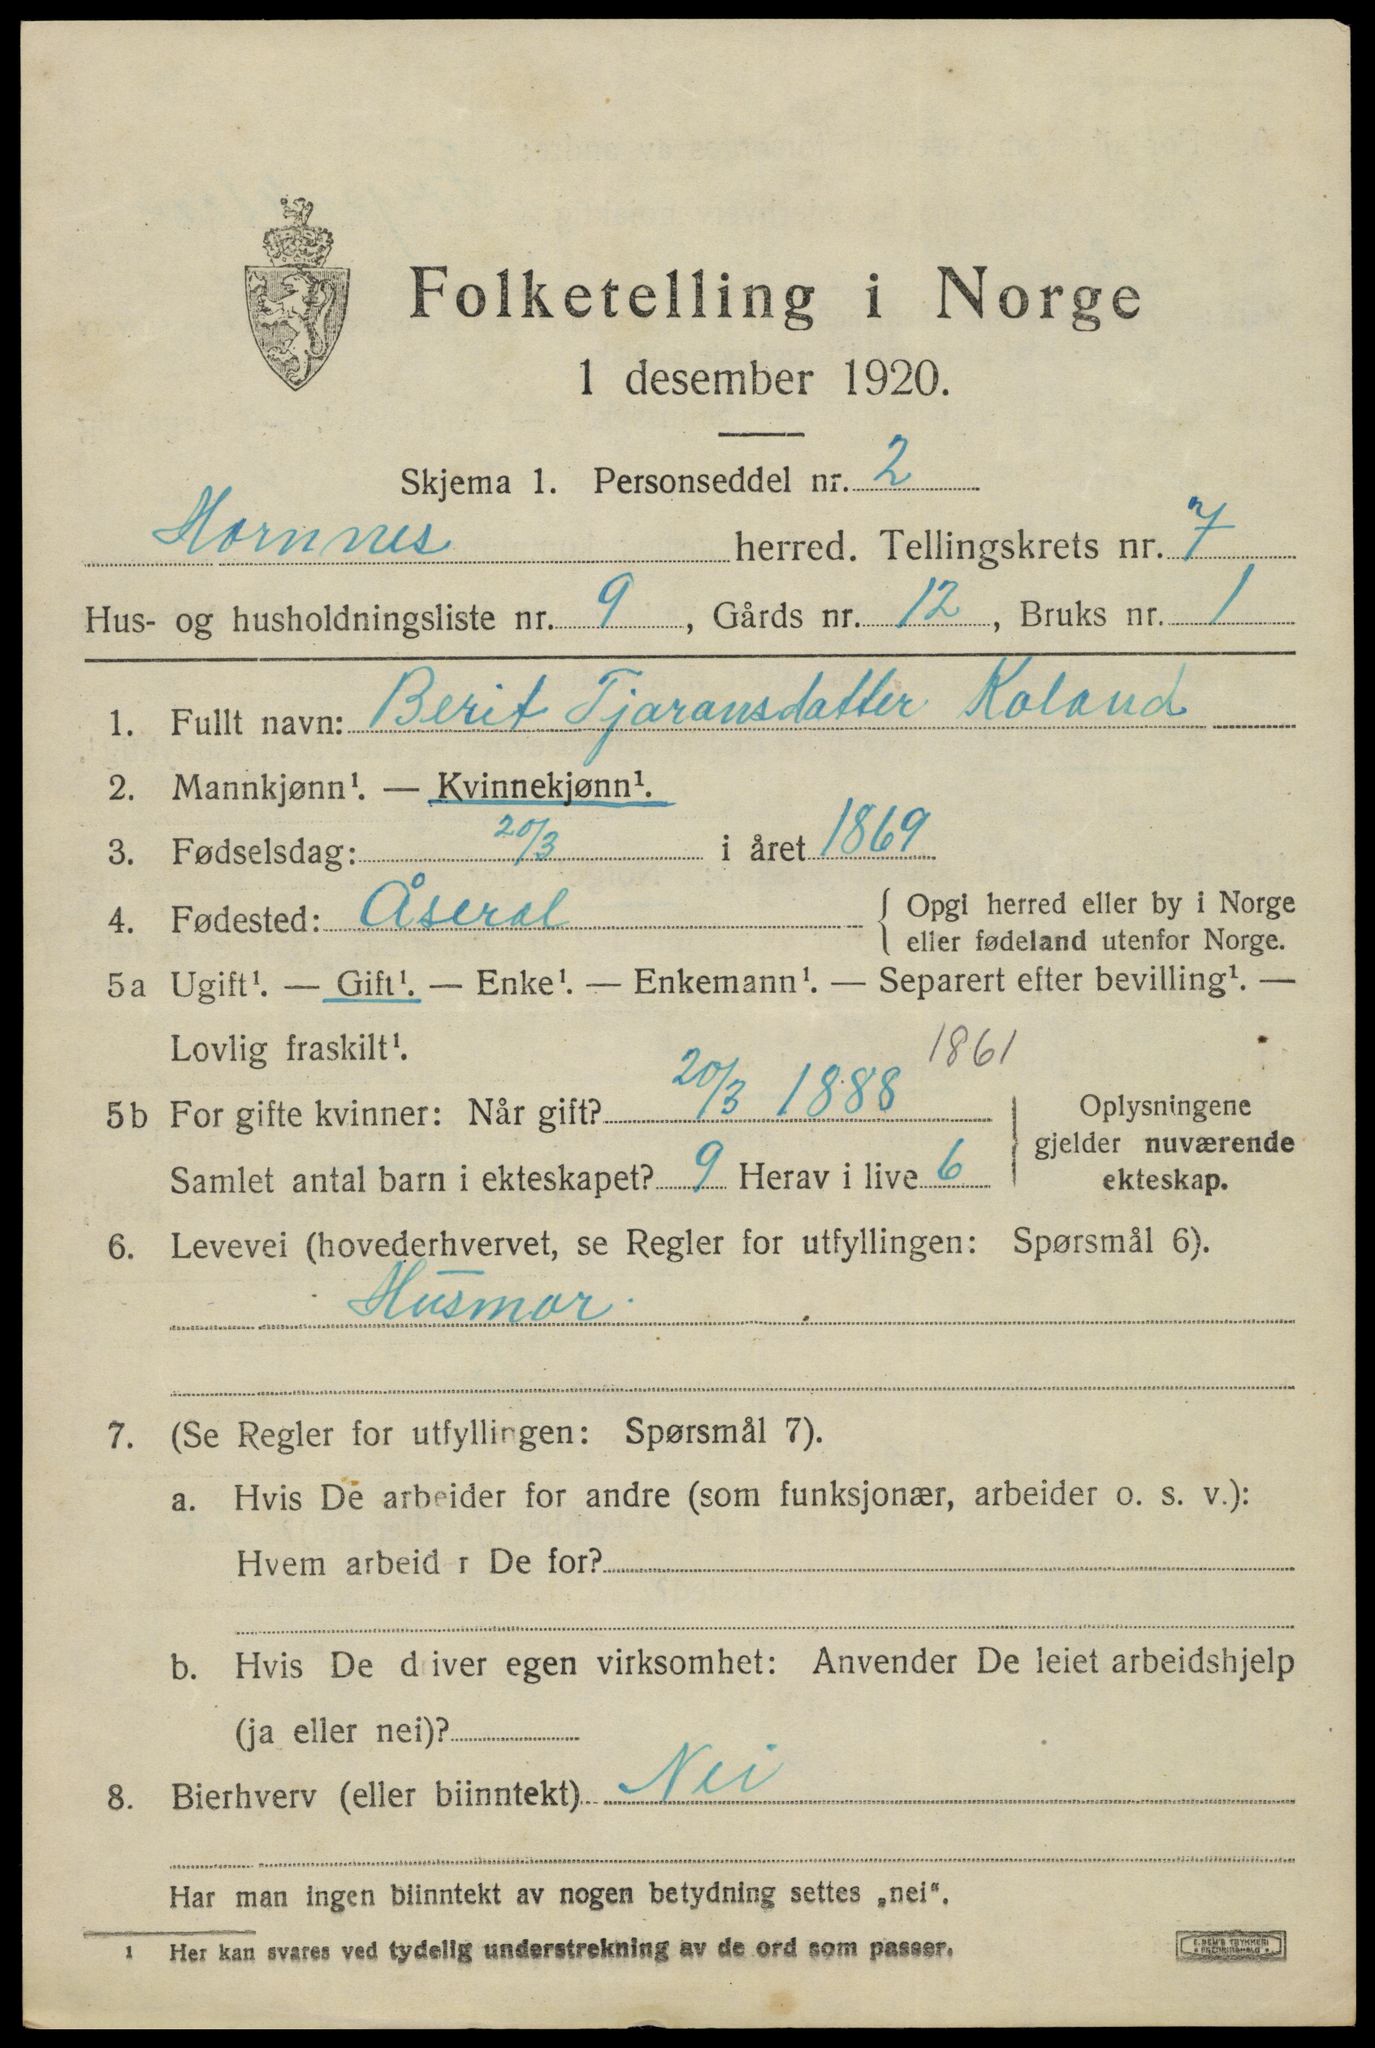 Folketelling i Norge
1 desember 1920.
Skjema 1. Personseddel nr. 2
Hornnes herred. Tellingskrets nr. 7
Hus- og husholdningsliste nr. 9, Gårds nr. 12, Bruks nr. 1
1. Fullt navn: Berit Tjaransdatter Koland
2. Mannkjønn¹. — Kvinnekjønn¹.
3. Fødselsdag: 20/3 i året 1869
4. Fødested: Åseral { Opgi herred eller by i Norge
eller fødeland utenfor Norge.
5a Ugift¹. — Gift¹. — Enke¹. — Enkemann¹. — Separert efter bevilling¹. —
Lovlig fraskilt¹. 1861
5b For gifte kvinner: Når gift? 20/3 1888
Samlet antal barn i ekteskapet? 9 Herav i live 6
} Oplysningene
gjelder nuværende
ekteskap.
6. Levevei (hovederhvervet, se Regler for utfyllingen: Spørsmål 6).
Husmor.
7. (Se Regler for utfyllingen: Spørsmål 7).
a. Hvis De arbeider for andre (som funksjonær, arbeider o. s. v.):
Hvem arbeid r De for?
b. Hvis De driver egen virksomhet: Anvender De leiet arbeidshjelp
(ja eller nei)?
8. Bierhverv (eller biinntekt) Nei
Har man ingen biinntekt av nogen betydning settes „nei“.
1 Her kan svares ved tydelig understrekning av de ord som passer.